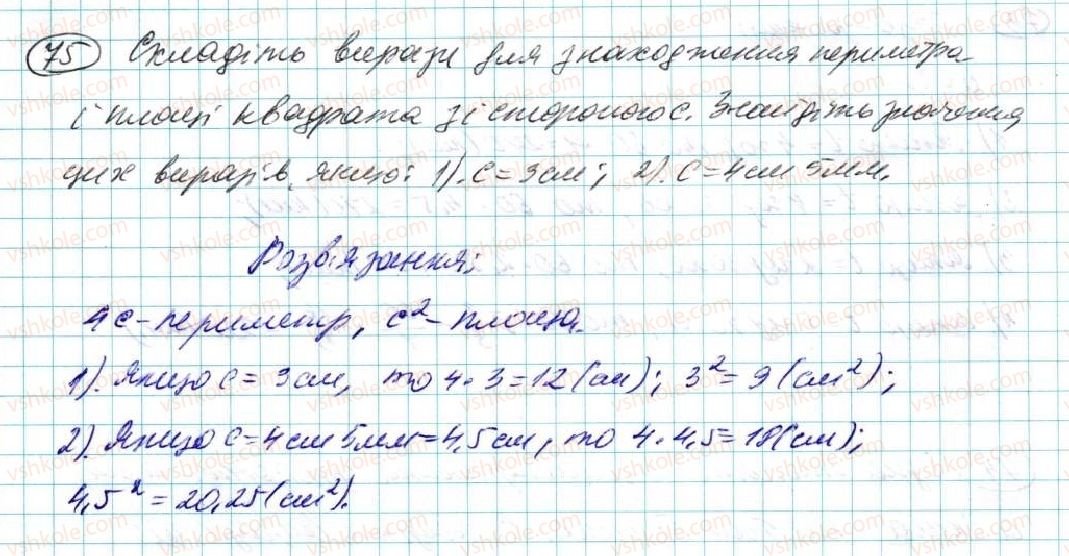 75 Складіть вирази для знаходження периметра
і площі квадрата зі стороною c. Знайдіть значення
цих виразів, якщо: 1). c = 3 см; 2). c = 4 см 5 мм.
Розв'язання:
4c - периметр, c² - площа.
1). Якщо c = 3 см, то 4 · 3 = 12 (см); 3² = 9 (см²);
2). Якщо c = 4 см 5 мм = 4,5 см, то 4 · 4,5 = 18 (см);
4,5² = 20,25 (см²).